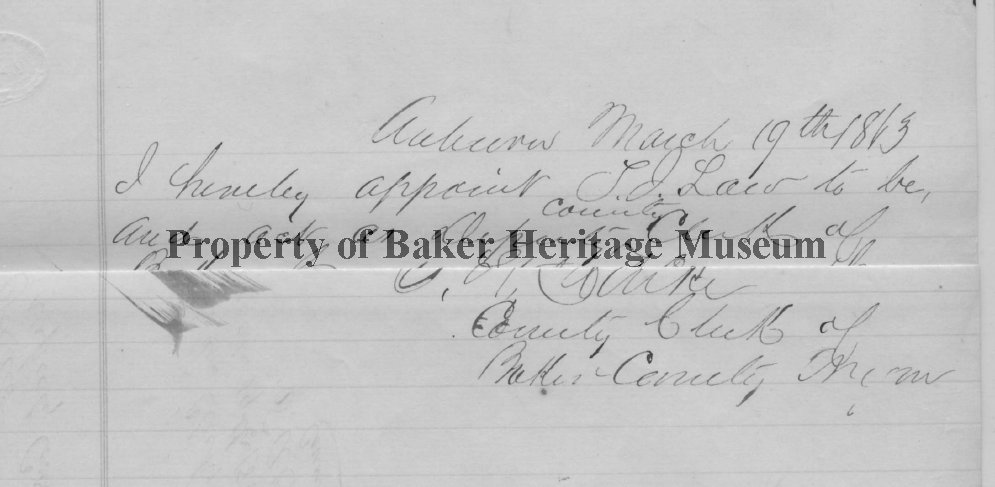 Auburn March 19th 1863
I hereby appoint T.J. Law to be,
county
and act as Deputy Clerk of
Property of Baker Heritage Museum
County Clerk of
Baker County